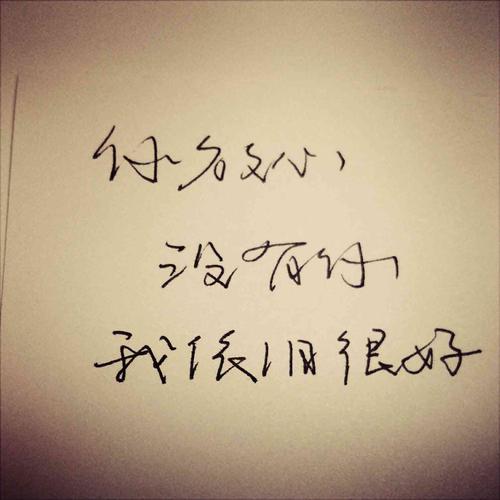 你放心
没有你
我依旧很好